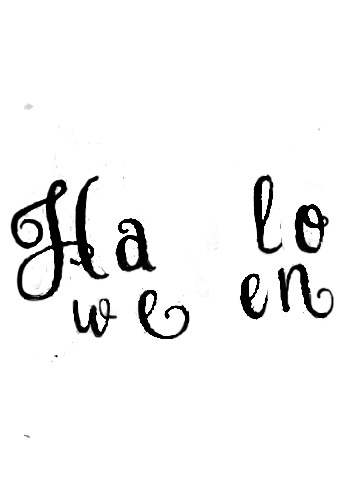 Ha lo
we en